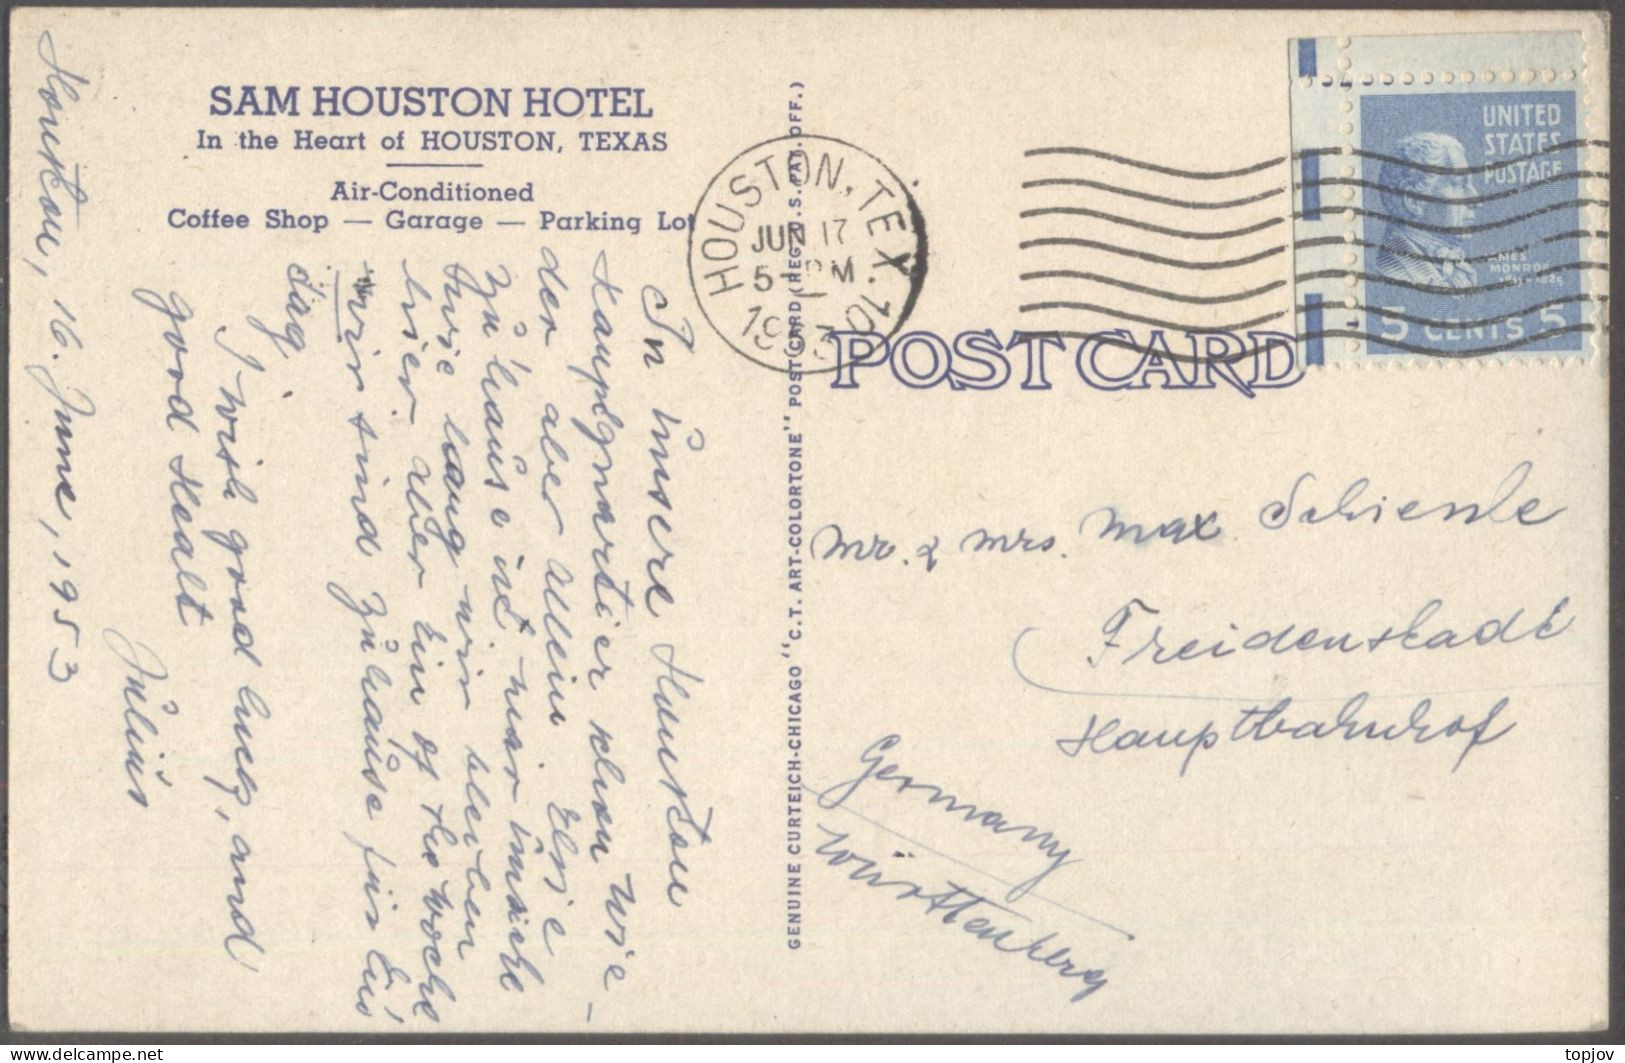 SAM HOUSTON HOTEL
In the Heart of HOUSTON, TEXAS
Air-Conditioned
Coffee Shop — Garage — Parking Lot
Houston, 16. June, 1953
In unsere Houston
Hauptquartier schon wie-
der aber allein Elsie
zu hause ist
wie lang wir bleiben
hier aber ein of the woche
wir sind zuhause für ein
tag.
I wish good luck, and
good Healt
Julius
GENUINE CURTEICH-CHICAGO "C.T. ART-COLORTONE" POST CARD (REG. U.S. PAT. OFF.)
HOUSTON, TEX. 10
JUN 17
5 - PM
1953
UNITED
STATES
POSTAGE
JAMES
MONROE
5 CENTS 5
POST CARD
Mr. & Mrs. Max Schienle
Freidenstadt
Hauptbahnhof
Germany
Württenberg
topjov